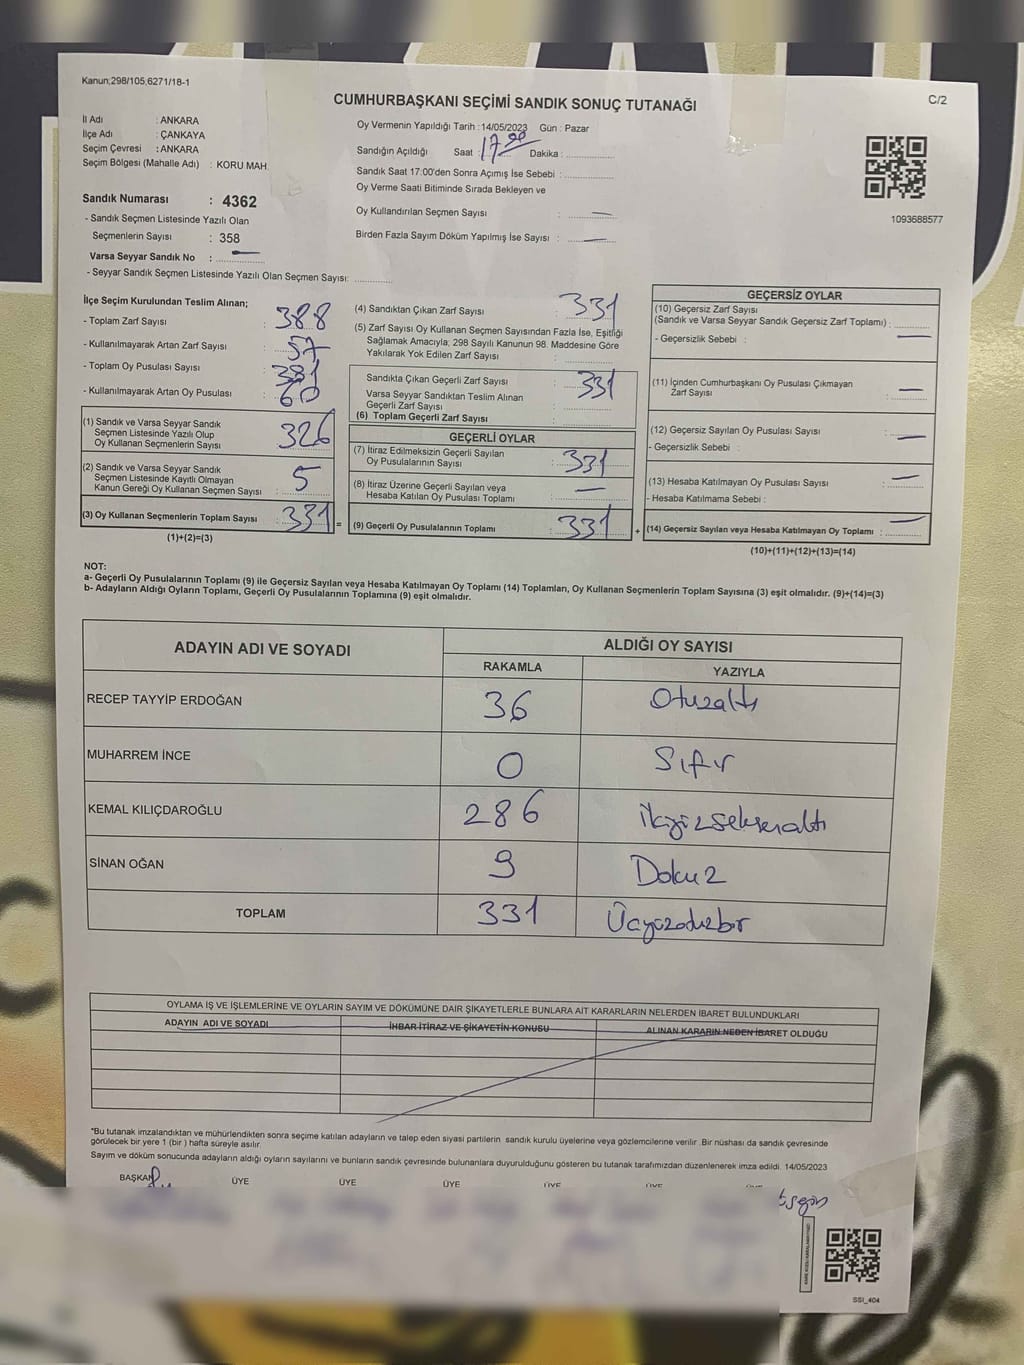 Kanun;298/105,6271/18-1
CUMHURBAŞKANI SEÇİMİ SANDIK SONUÇ TUTANAĞI
C/2
İl Adı : ANKARA
İlçe Adı : ÇANKAYA
Seçim Çevresi : ANKARA
Seçim Bölgesi (Mahalle Adı) : KORU MAH.
Oy Vermenin Yapıldığı Tarih :14/05/2023 Gün : Pazar
Sandığın Açıldığı Saat : 17:00 Dakika :
Sandık Saat 17:00'den Sonra Açımış İse Sebebi :
Oy Verme Saati Bitiminde Sırada Bekleyen ve
Oy Kullandırılan Seçmen Sayısı : —
Birden Fazla Sayım Döküm Yapılmış İse Sayısı : —
1093688577
Sandık Numarası : 4362
- Sandık Seçmen Listesinde Yazılı Olan
Seçmenlerin Sayısı : 358
Varsa Seyyar Sandık No : —
- Seyyar Sandık Seçmen Listesinde Yazılı Olan Seçmen Sayısı:
İlçe Seçim Kurulundan Teslim Alınan;
- Toplam Zarf Sayısı : 388
- Kullanılmayarak Artan Zarf Sayısı : 57
- Toplam Oy Pusulası Sayısı :
- Kullanılmayarak Artan Oy Pusulası : 60
(1) Sandık ve Varsa Seyyar Sandık
Seçmen Listesinde Yazılı Olup
Oy Kullanan Seçmenlerin Sayısı : 326
(2) Sandık ve Varsa Seyyar Sandık
Seçmen Listesinde Kayıtlı Olmayan
Kanun Gereği Oy Kullanan Seçmen Sayısı : 5
(3) Oy Kullanan Seçmenlerin Toplam Sayısı : 331 =
(1)+(2)=(3)
(4) Sandıktan Çıkan Zarf Sayısı : 331
(5) Zarf Sayısı Oy Kullanan Seçmen Sayısından Fazla İse, Eşitliği
Sağlamak Amacıyla; 298 Sayılı Kanunun 98. Maddesine Göre
Yakılarak Yok Edilen Zarf Sayısı :
Sandıkta Çıkan Geçerli Zarf Sayısı : 331
Varsa Seyyar Sandıktan Teslim Alınan
Geçerli Zarf Sayısı :
(6) Toplam Geçerli Zarf Sayısı :
GEÇERLİ OYLAR
(7) İtiraz Edilmeksizin Geçerli Sayılan
Oy Pusulalarının Sayısı : 331
(8) İtiraz Üzerine Geçerli Sayılan veya
Hesaba Katılan Oy Pusulası Toplamı : —
(9) Geçerli Oy Pusulalarının Toplamı : 331 +
GEÇERSİZ OYLAR
(10) Geçersiz Zarf Sayısı
(Sandık ve Varsa Seyyar Sandık Geçersiz Zarf Toplamı) :
- Geçersizlik Sebebi : —
(11) İçinden Cumhurbaşkanı Oy Pusulası Çıkmayan
Zarf Sayısı : —
(12) Geçersiz Sayılan Oy Pusulası Sayısı : —
- Geçersizlik Sebebi :
(13) Hesaba Katılmayan Oy Pusulası Sayısı : —
- Hesaba Katılmama Sebebi :
(14) Geçersiz Sayılan veya Hesaba Katılmayan Oy Toplamı : —
(10)+(11)+(12)+(13)=(14)
NOT:
a- Geçerli Oy Pusulalarının Toplamı (9) ile Geçersiz Sayılan veya Hesaba Katılmayan Oy Toplamı (14) Toplamları, Oy Kullanan Seçmenlerin Toplam Sayısına (3) eşit olmalıdır. (9)+(14)=(3)
b- Adayların Aldığı Oyların Toplamı, Geçerli Oy Pusulalarının Toplamına (9) eşit olmalıdır.
ADAYIN ADI VE SOYADI ALDIĞI OY SAYISI
RAKAMLA YAZIYLA
RECEP TAYYİP ERDOĞAN 36 Otuzaltı
MUHARREM İNCE 0 Sıfır
KEMAL KILIÇDAROĞLU 286 ikiyüzseksenaltı
SİNAN OĞAN 9 Dokuz
TOPLAM 331 Üçyüzotuzbir
OYLAMA İŞ VE İŞLEMLERİNE VE OYLARIN SAYIM VE DÖKÜMÜNE DAİR ŞİKAYETLERLE BUNLARA AİT KARARLARIN NELERDEN İBARET BULUNDUKLARI
ADAYIN ADI VE SOYADI İHBAR İTİRAZ VE ŞİKAYETİN KONUSU ALINAN KARARIN NEDEN İBARET OLDUĞU
*Bu tutanak imzalandıktan ve mühürlendikten sonra seçime katılan adayların ve talep eden siyasi partilerin sandık kurulu üyelerine veya gözlemcilerine verilir. Bir nüshası da sandık çevresinde
görülecek bir yere 1 (bir) hafta süreyle asılır.
Sayım ve döküm sonucunda adayların aldığı oyların sayılarını ve bunların sandık çevresinde bulunanlara duyurulduğunu gösteren bu tutanak tarafımızdan düzenlenerek imza edildi. 14/05/2023
BAŞKAN ÜYE ÜYE ÜYE ÜYE ÜYE
SSI_404